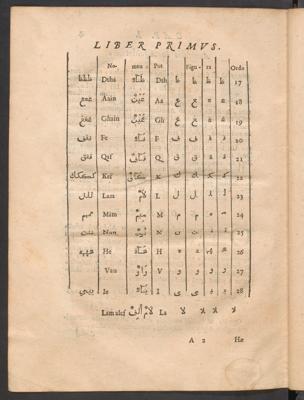 LIBER PRIMVS.
No- men Pot Figu- ra Ordo
ظظظ Dthi ظَاء Dth ظ ظ ظ ظ 17
ععع Aain عَيْن Aa ع ع ع ع 18
غغغ Ghain غَيْن Gh غ غ غ غ 19
ففف Fe فَاء F ف ف ف ف 20
ققق Qaf قَاف Q ق ق ق ق 21
ككك Kef كَاف K ك ك ك ك 22
للل Lam لَام L ل ل ل ل 23
ممم Mim مِيم M م م م م 24
ننن Nun نُون N ن ن ن ن 25
ههه He هَاء H ه ه ه ه 26
Vau وَاو V و و و و 27
ييي Ie يَاء I ي ي ي ي 28
Lam alef لَام أَلِف La لا لا لا
A 2 Hæ